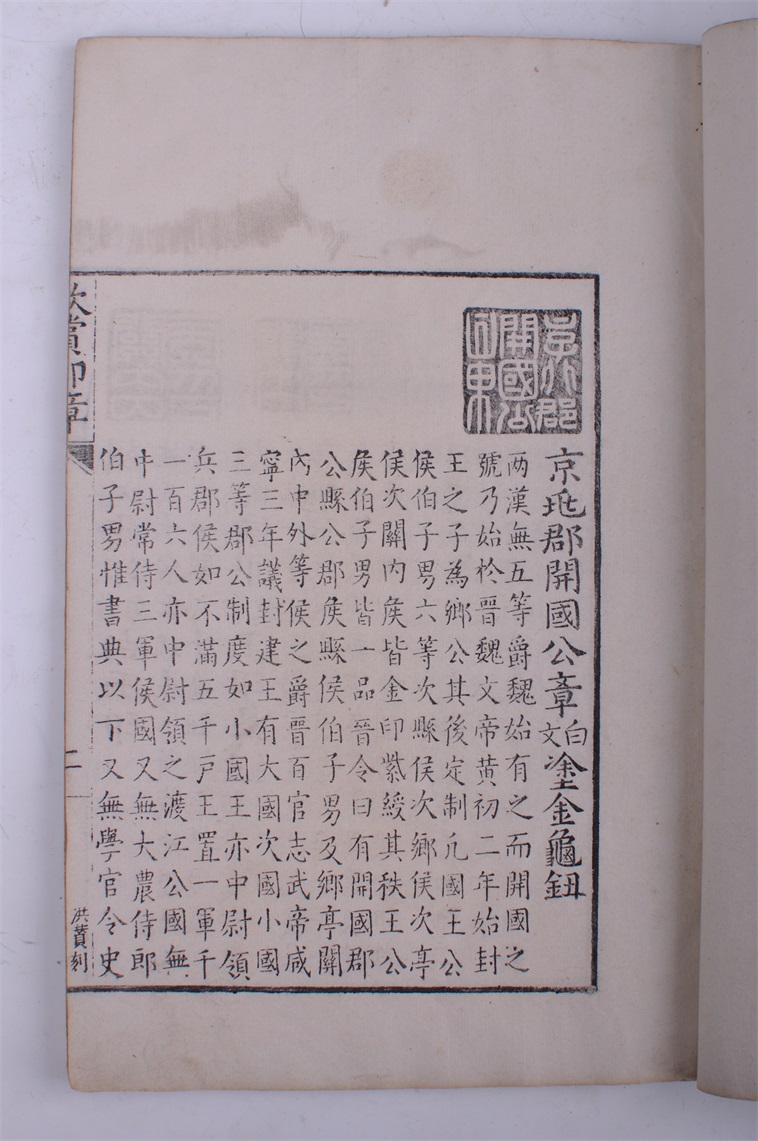 京兆郡
開國公
京兆郡開國公章白文塗金龜鈕
两漢無五等爵魏始有之而開國之
號乃始於晉魏文帝黄初二年始封
王之子為鄉公其後定制凡國王公
侯伯子男六等次縣侯次鄉侯次亭
侯次關内侯皆金印紫綬其秩王公
侯伯子男皆一品晉令曰有開國郡
公縣公郡侯縣侯伯子男及鄉亭關
内中外等侯之爵晉百官志武帝咸
寧三年議封建王有大國次國小國
三等郡公制度如小國王亦中尉領
兵郡侯如不滿五千戸王置一軍千
一百六人亦中尉領之渡江公國無
中尉常侍三軍侯國又無大農侍郎
伯子男惟書典以下又無學官令史
欣賞印章
二
洪賁刻